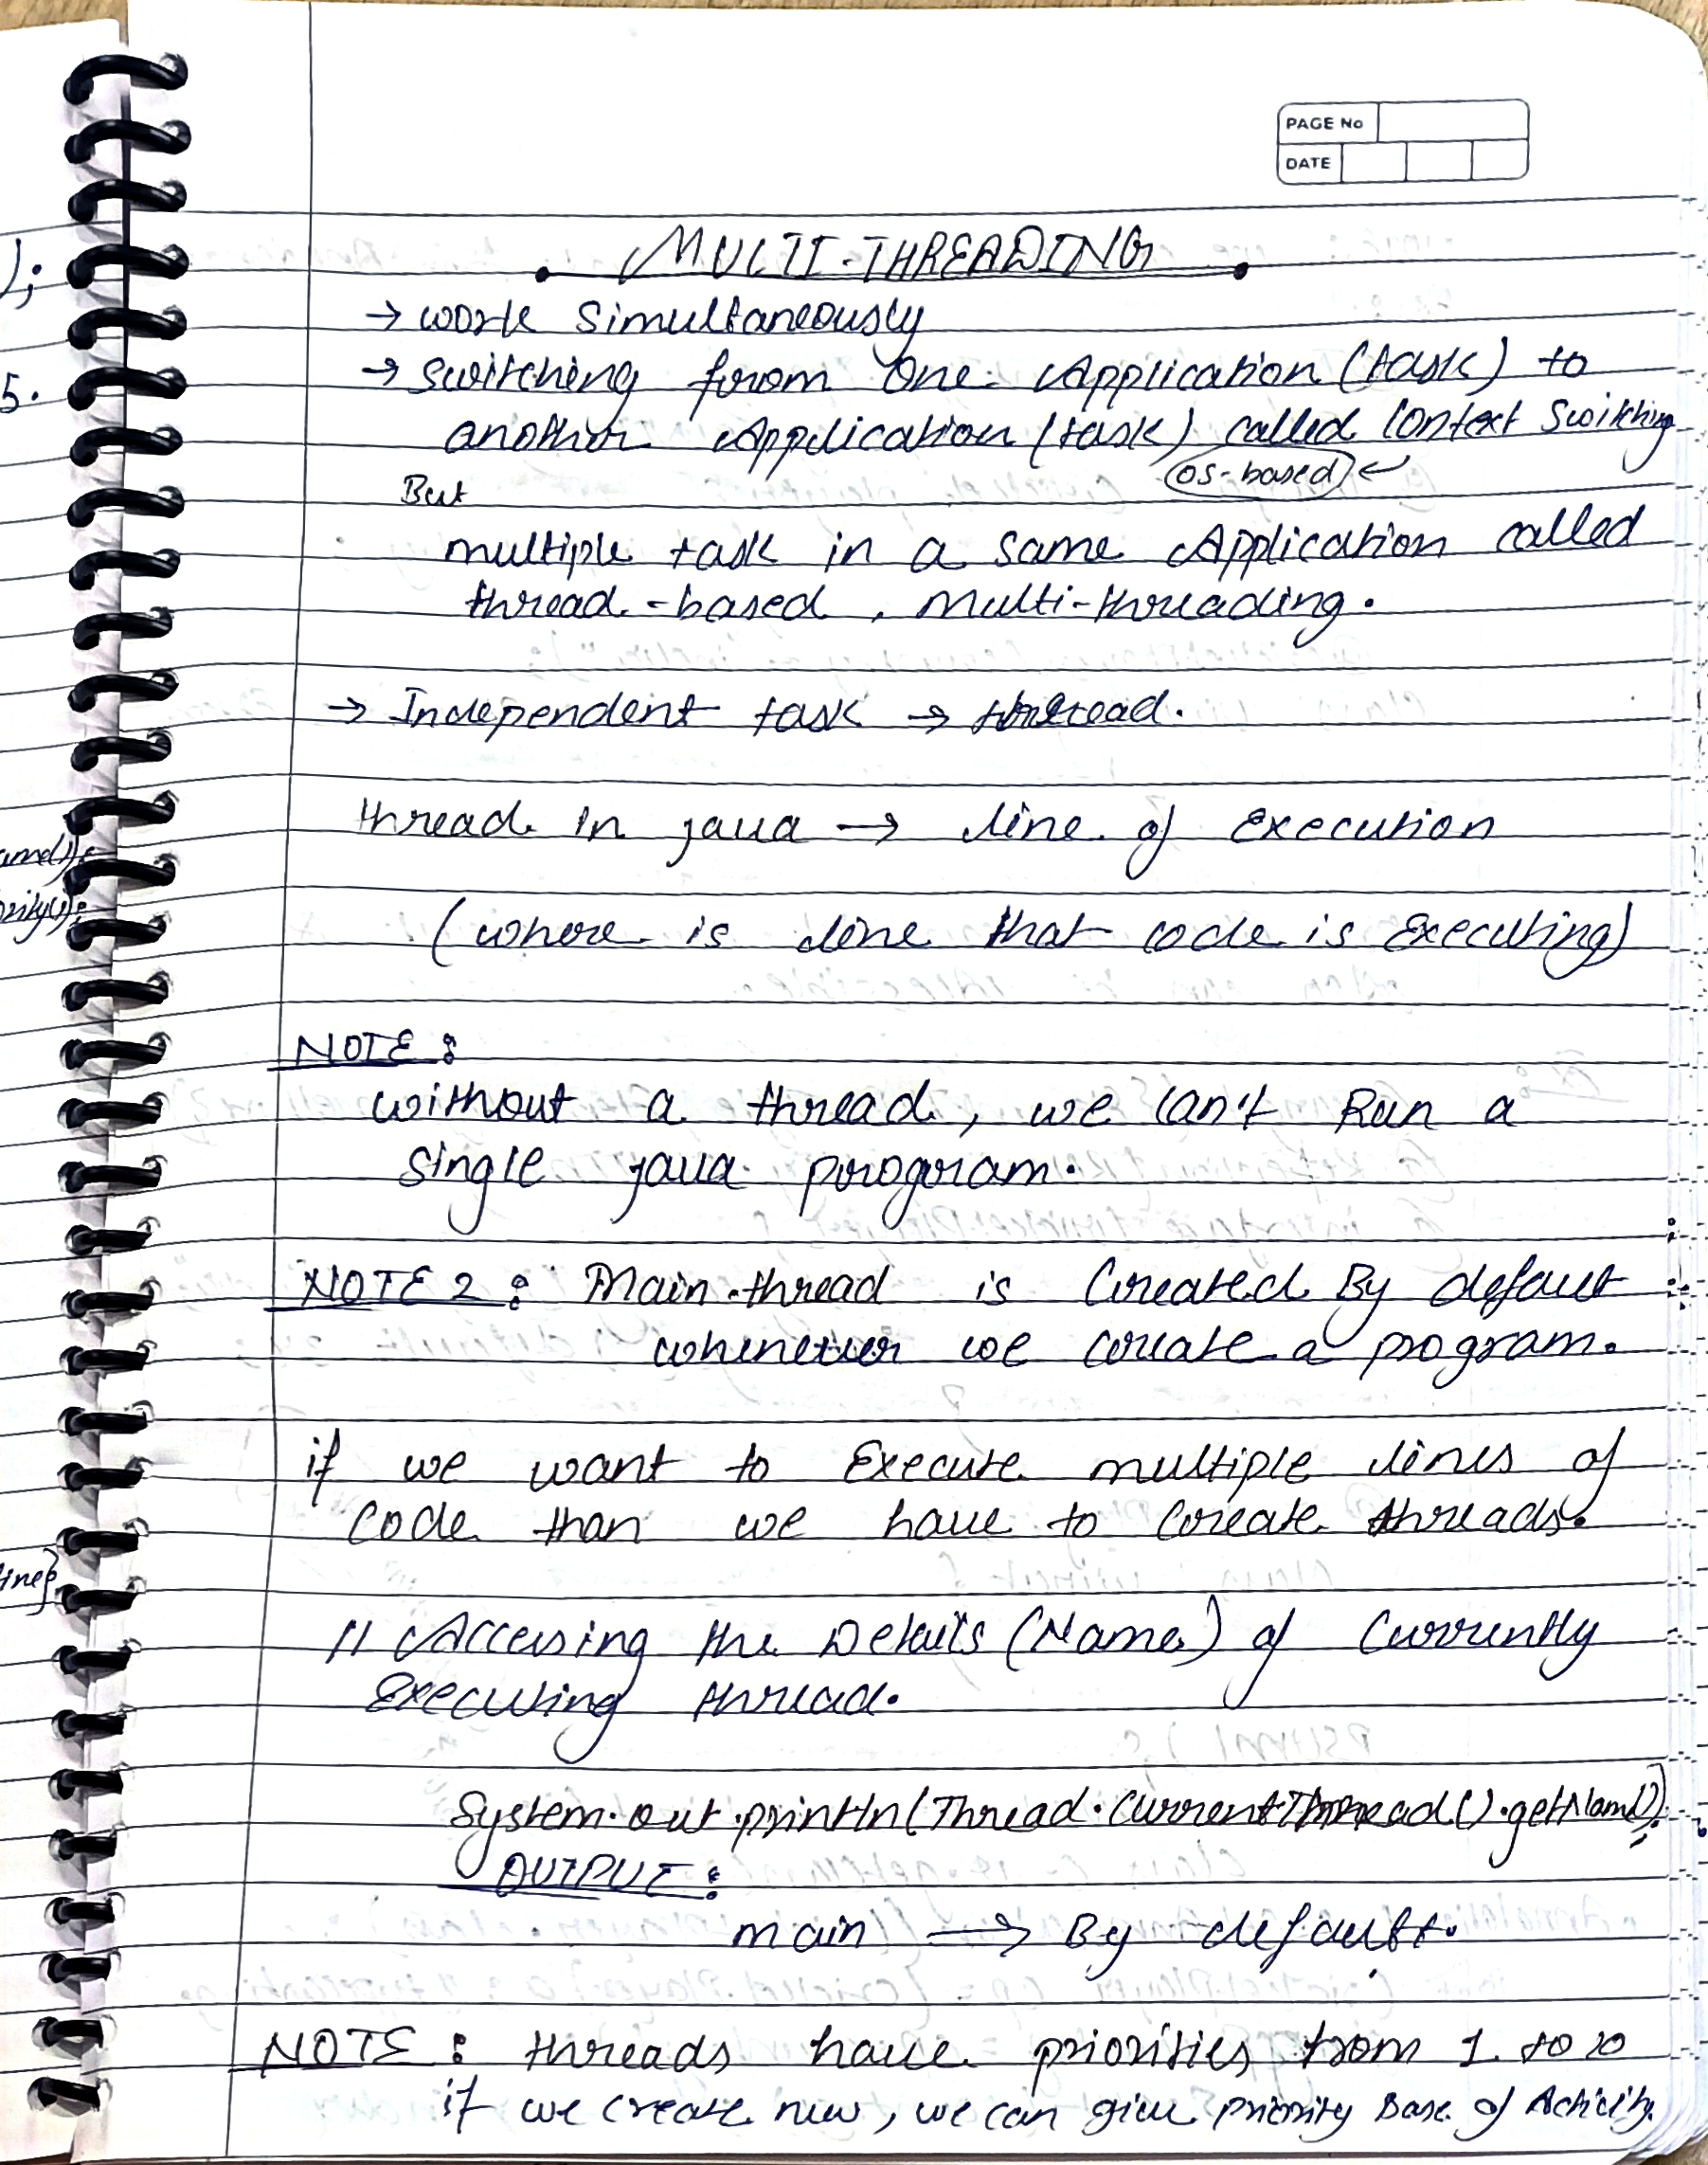 PAGE No
DATE
MULTI-THREADING
→ work Simultaneously
→ switching from one Application (task) to
another Application (task) called Context Switching
(OS-based) ←
But
multiple task in a same Application called
thread-based, Multi-threading.
→ Independent task → thread.
thread in java → line of execution
(where is line that code is executing)
NOTE:
without a thread, we can't Run a
single java program.
NOTE 2: Main-thread is Created By default
whenever we create a program.
if we want to Execute multiple lines of
Code than we have to Create threads.
// Accessing the Details (Name) of Currently
Executing thread.
System.out.println(Thread.currentThread().getName());
OUTPUT:
main → By default.
NOTE: threads have priorities from 1 to 10
if we create new, we can give priority Base of Activity.
);
5.
ame());
ority());
ine}